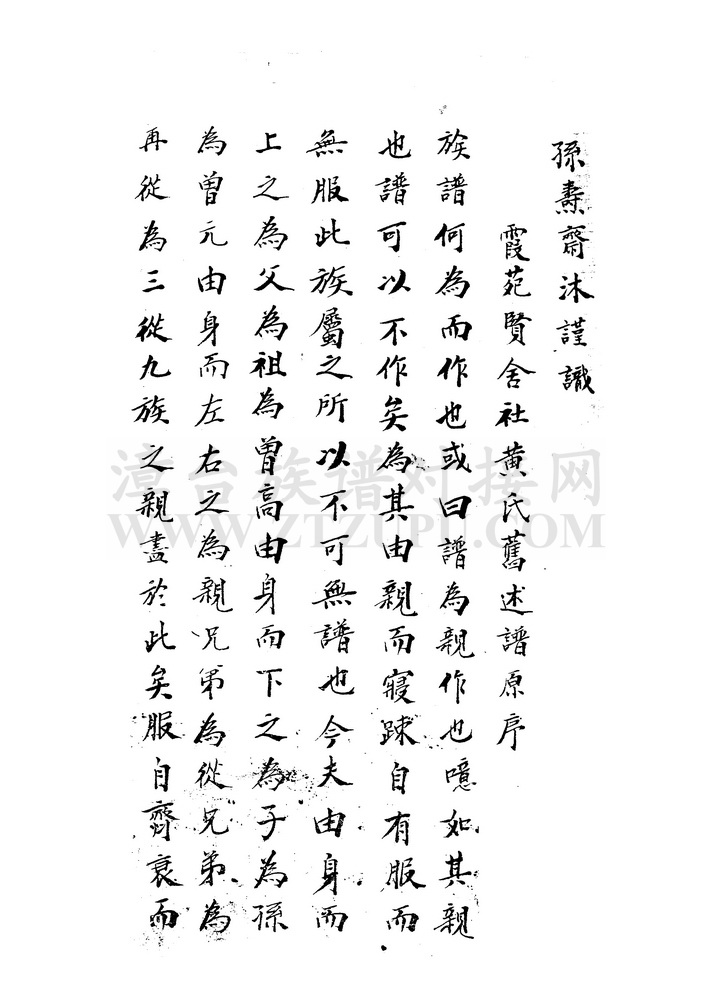 孫燾齋沐謹識
霞苑賢舍社黄氏舊述譜原序
族譜何為而作也或曰譜為親作也噫如其親
也譜可以不作矣為其由親而寖踈自有服而
無服此族屬之所以不可無譜也今夫由身而
上之為父為祖為曾高由身而下之為子為孫
為曾元由身而左右之為親兄弟為從兄弟為
再從為三從九族之親盡於此矣服自齊衰而
漳台族谱对接网
WWW.ZTZUPU.COM